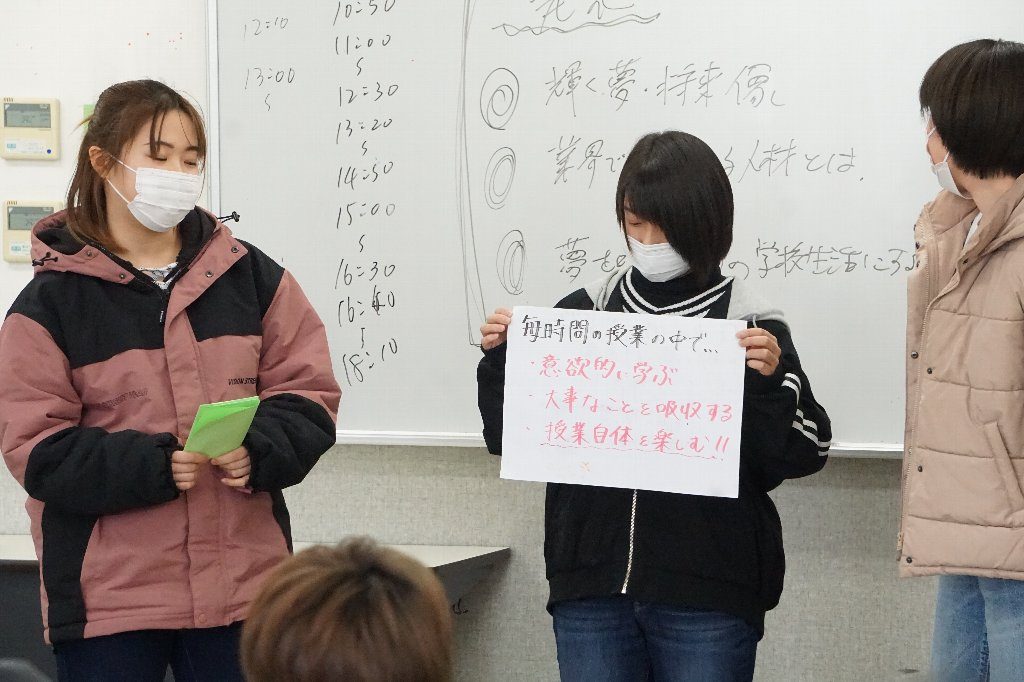 12:10
13:00
S
10:50
11:00
S
12:30
13:20
S
14:50
15:00
S
16:30
16:40
S
18:10
輝く夢・将来像
業界で
る人材とは.
夢を
の学校生活
毎時間の授業の中で...
・意欲的に学ぶ
・大事なことを吸収する
・授業自体を楽しむ!!